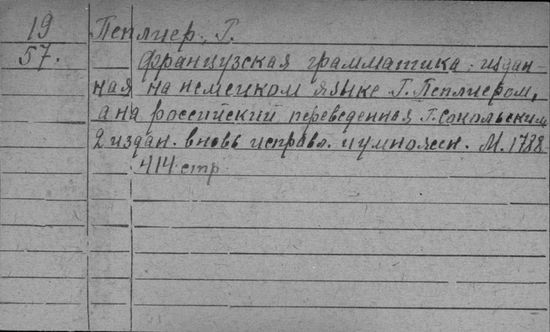 19
57.
Пеплиер, Г.
Французская грамматика, издан-
ная на немецком языке Г. Пеплиером,
а на российский переведенная Г. Сокольским
2 издан. вновь исправл. и умножен. М. 1788
414 стр